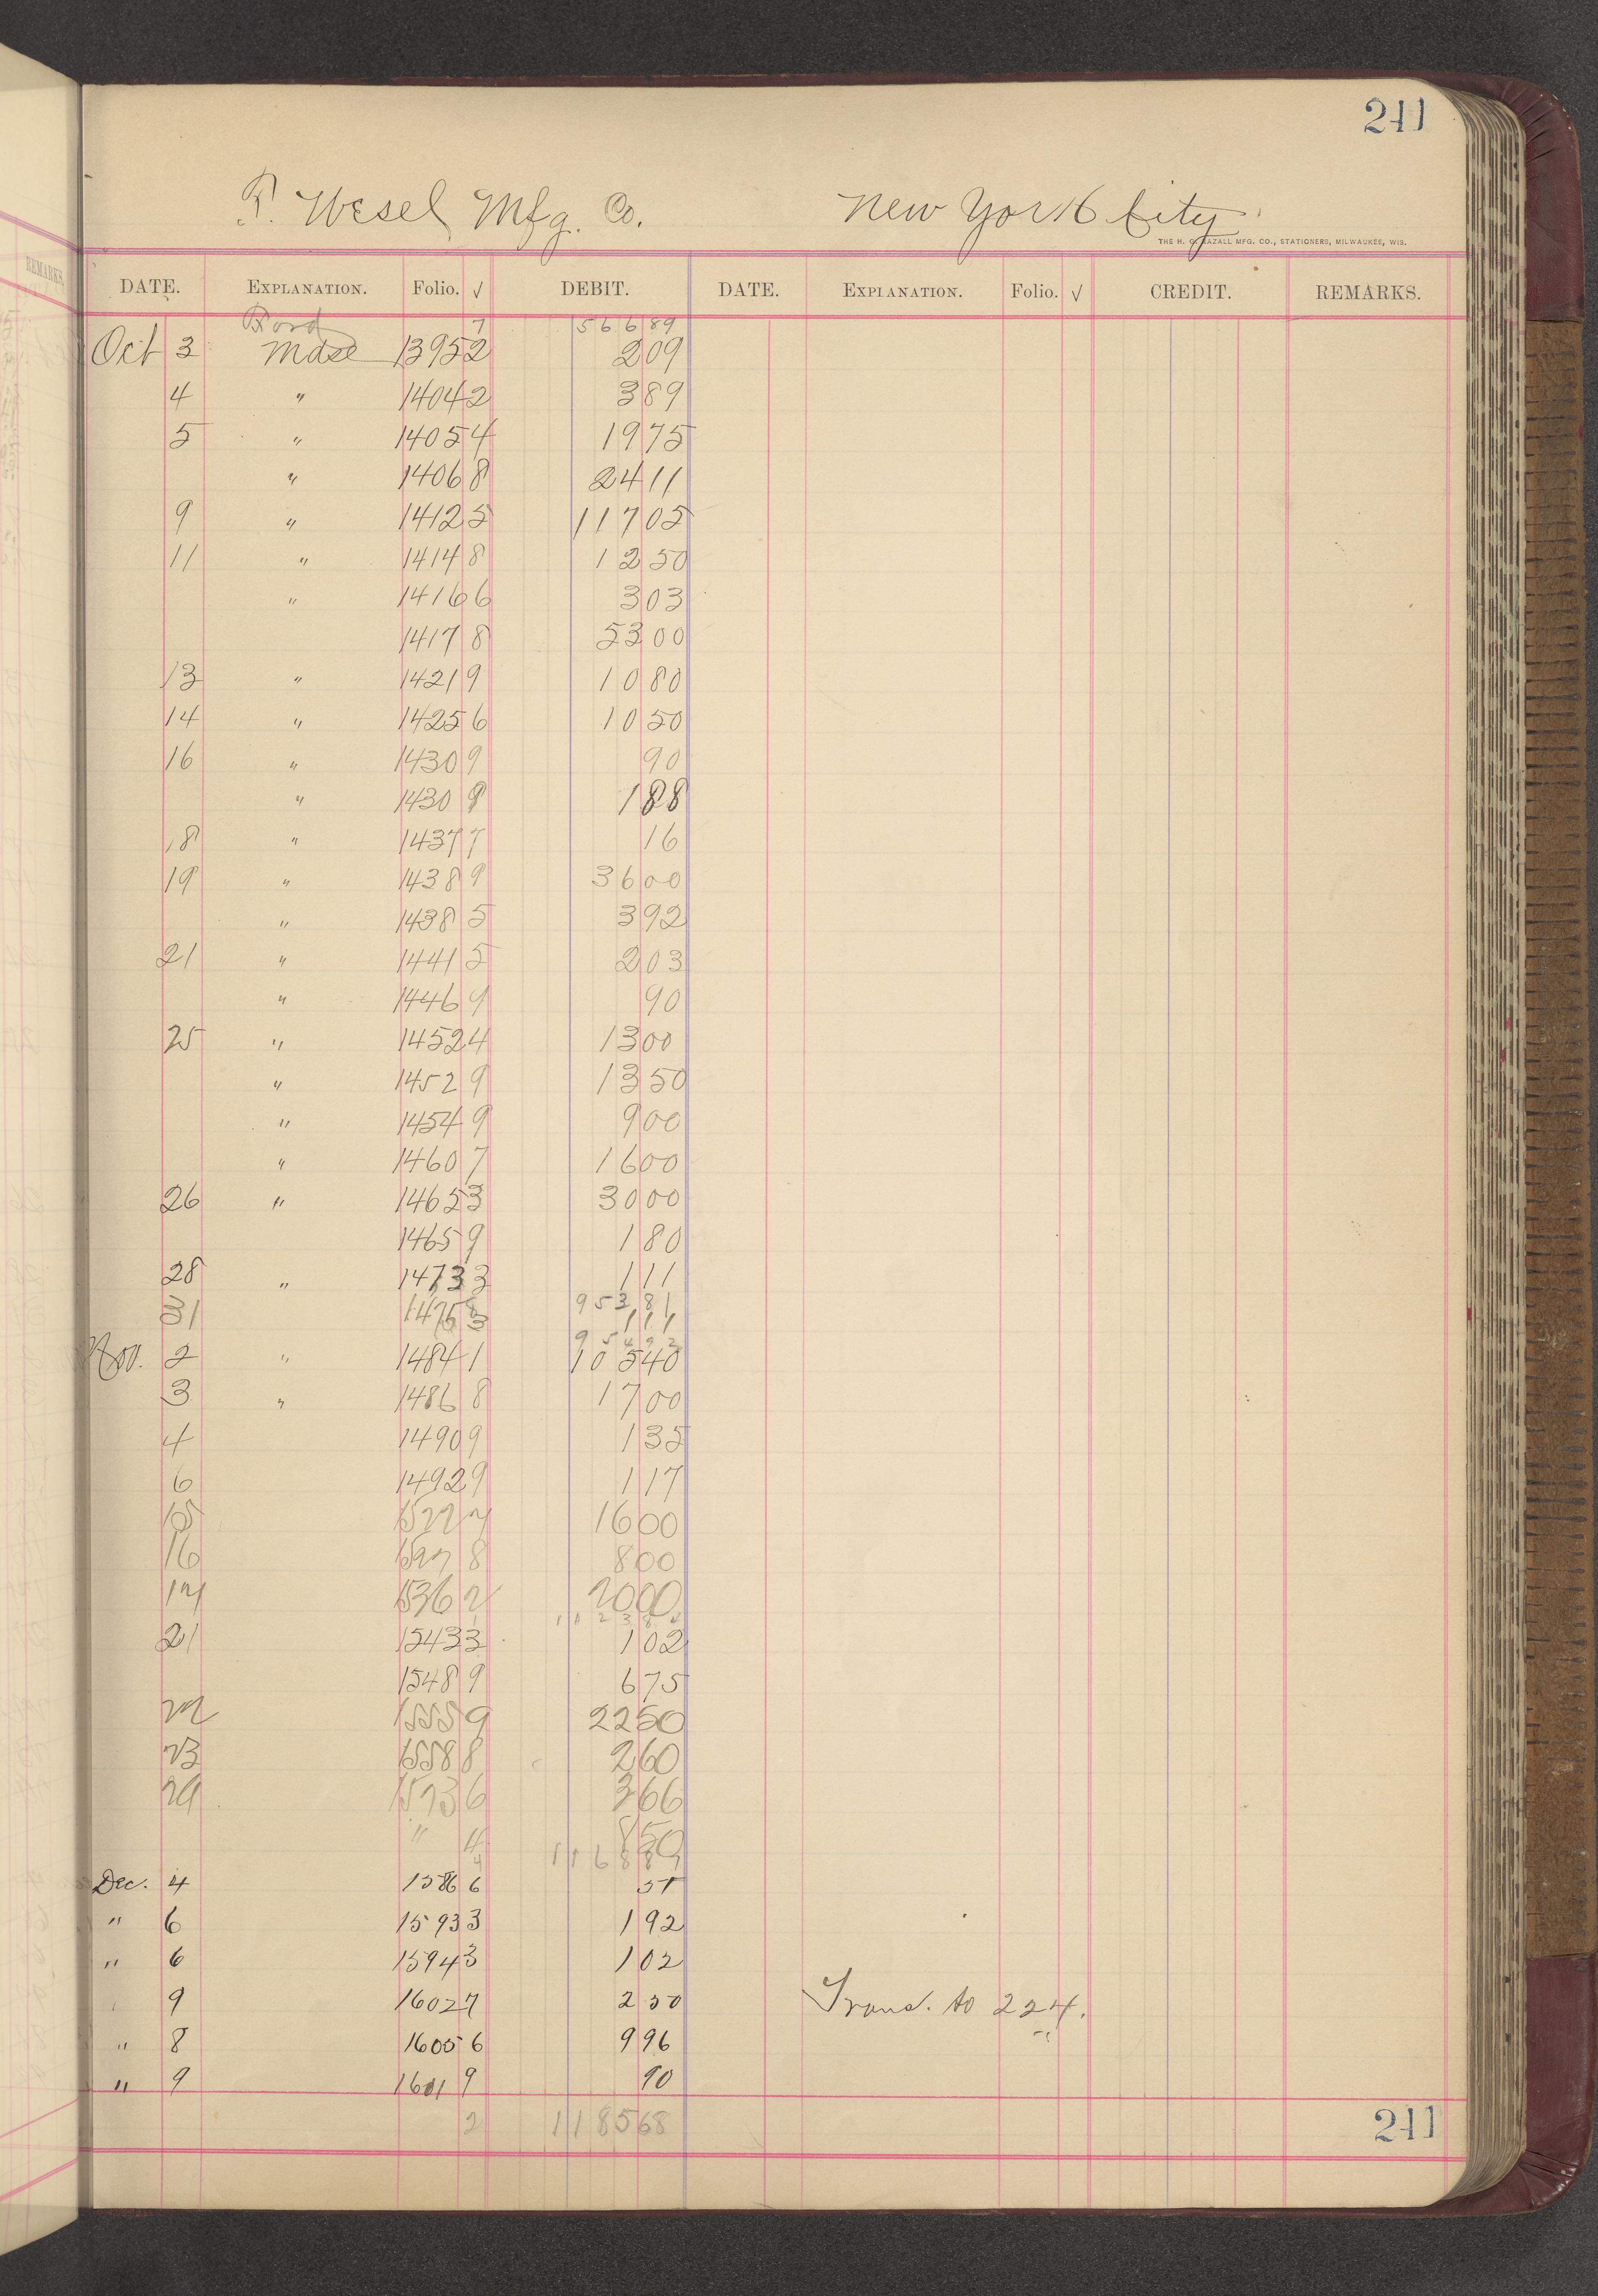 241
F. Wesel Mfg. Co. New York City
THE H. C. RAZALL MFG. CO., STATIONERS, MILWAUKEE, WIS.
REMARKS.
DATE. EXPLANATION. Folio. √ DEBIT. DATE. EXPLANATION. Folio. √ CREDIT. REMARKS.
Ford 7 566 89
Oct 3 Mdse 1395 2 2 09
4 " 1404 2 3 89
5 " 1405 4 19 75
" 1406 8 24 11
9 " 1412 5 117 05
11 " 1414 8 12 50
" 1416 6 3 03
1417 8 53 00
13 " 1421 9 10 80
14 " 1425 6 10 50
16 " 1430 9 90
" 1430 8 1 88
18 " 1437 7 16
19 " 1438 9 36 00
" 1438 5 3 92
21 " 1441 5 2 03
" 1446 9 90
25 " 1452 4 13 00
" 1452 9 13 50
" 1454 9 9 00
" 1460 7 16 00
26 " 1465 3 30 00
1465 9 1 80
28 " 1473 3 1 11
953 81
31 1 11
954 92
Nov. 2 " 1484 1 105 40
3 " 1486 8 17 00
4 1490 9 1 35
6 1492 9 1 17
15 1522 7 16 00
16 1527 8 8 00
17 1536 2 20 00
21 1543 3 1 02
1548 9 6 75
22 1555 9 22 50
23 1558 8 2 60
29 1573 6 3 66
" 4 8 50
4 1168 89
Dec. 4 1586 6
" 6 1593 3 1 92
" 6 1594 3 1 02
9 1602 7 2 50 Trans. to 224.
" 8 1605 6 9 96
" 9 9 90
2 1185 68
241